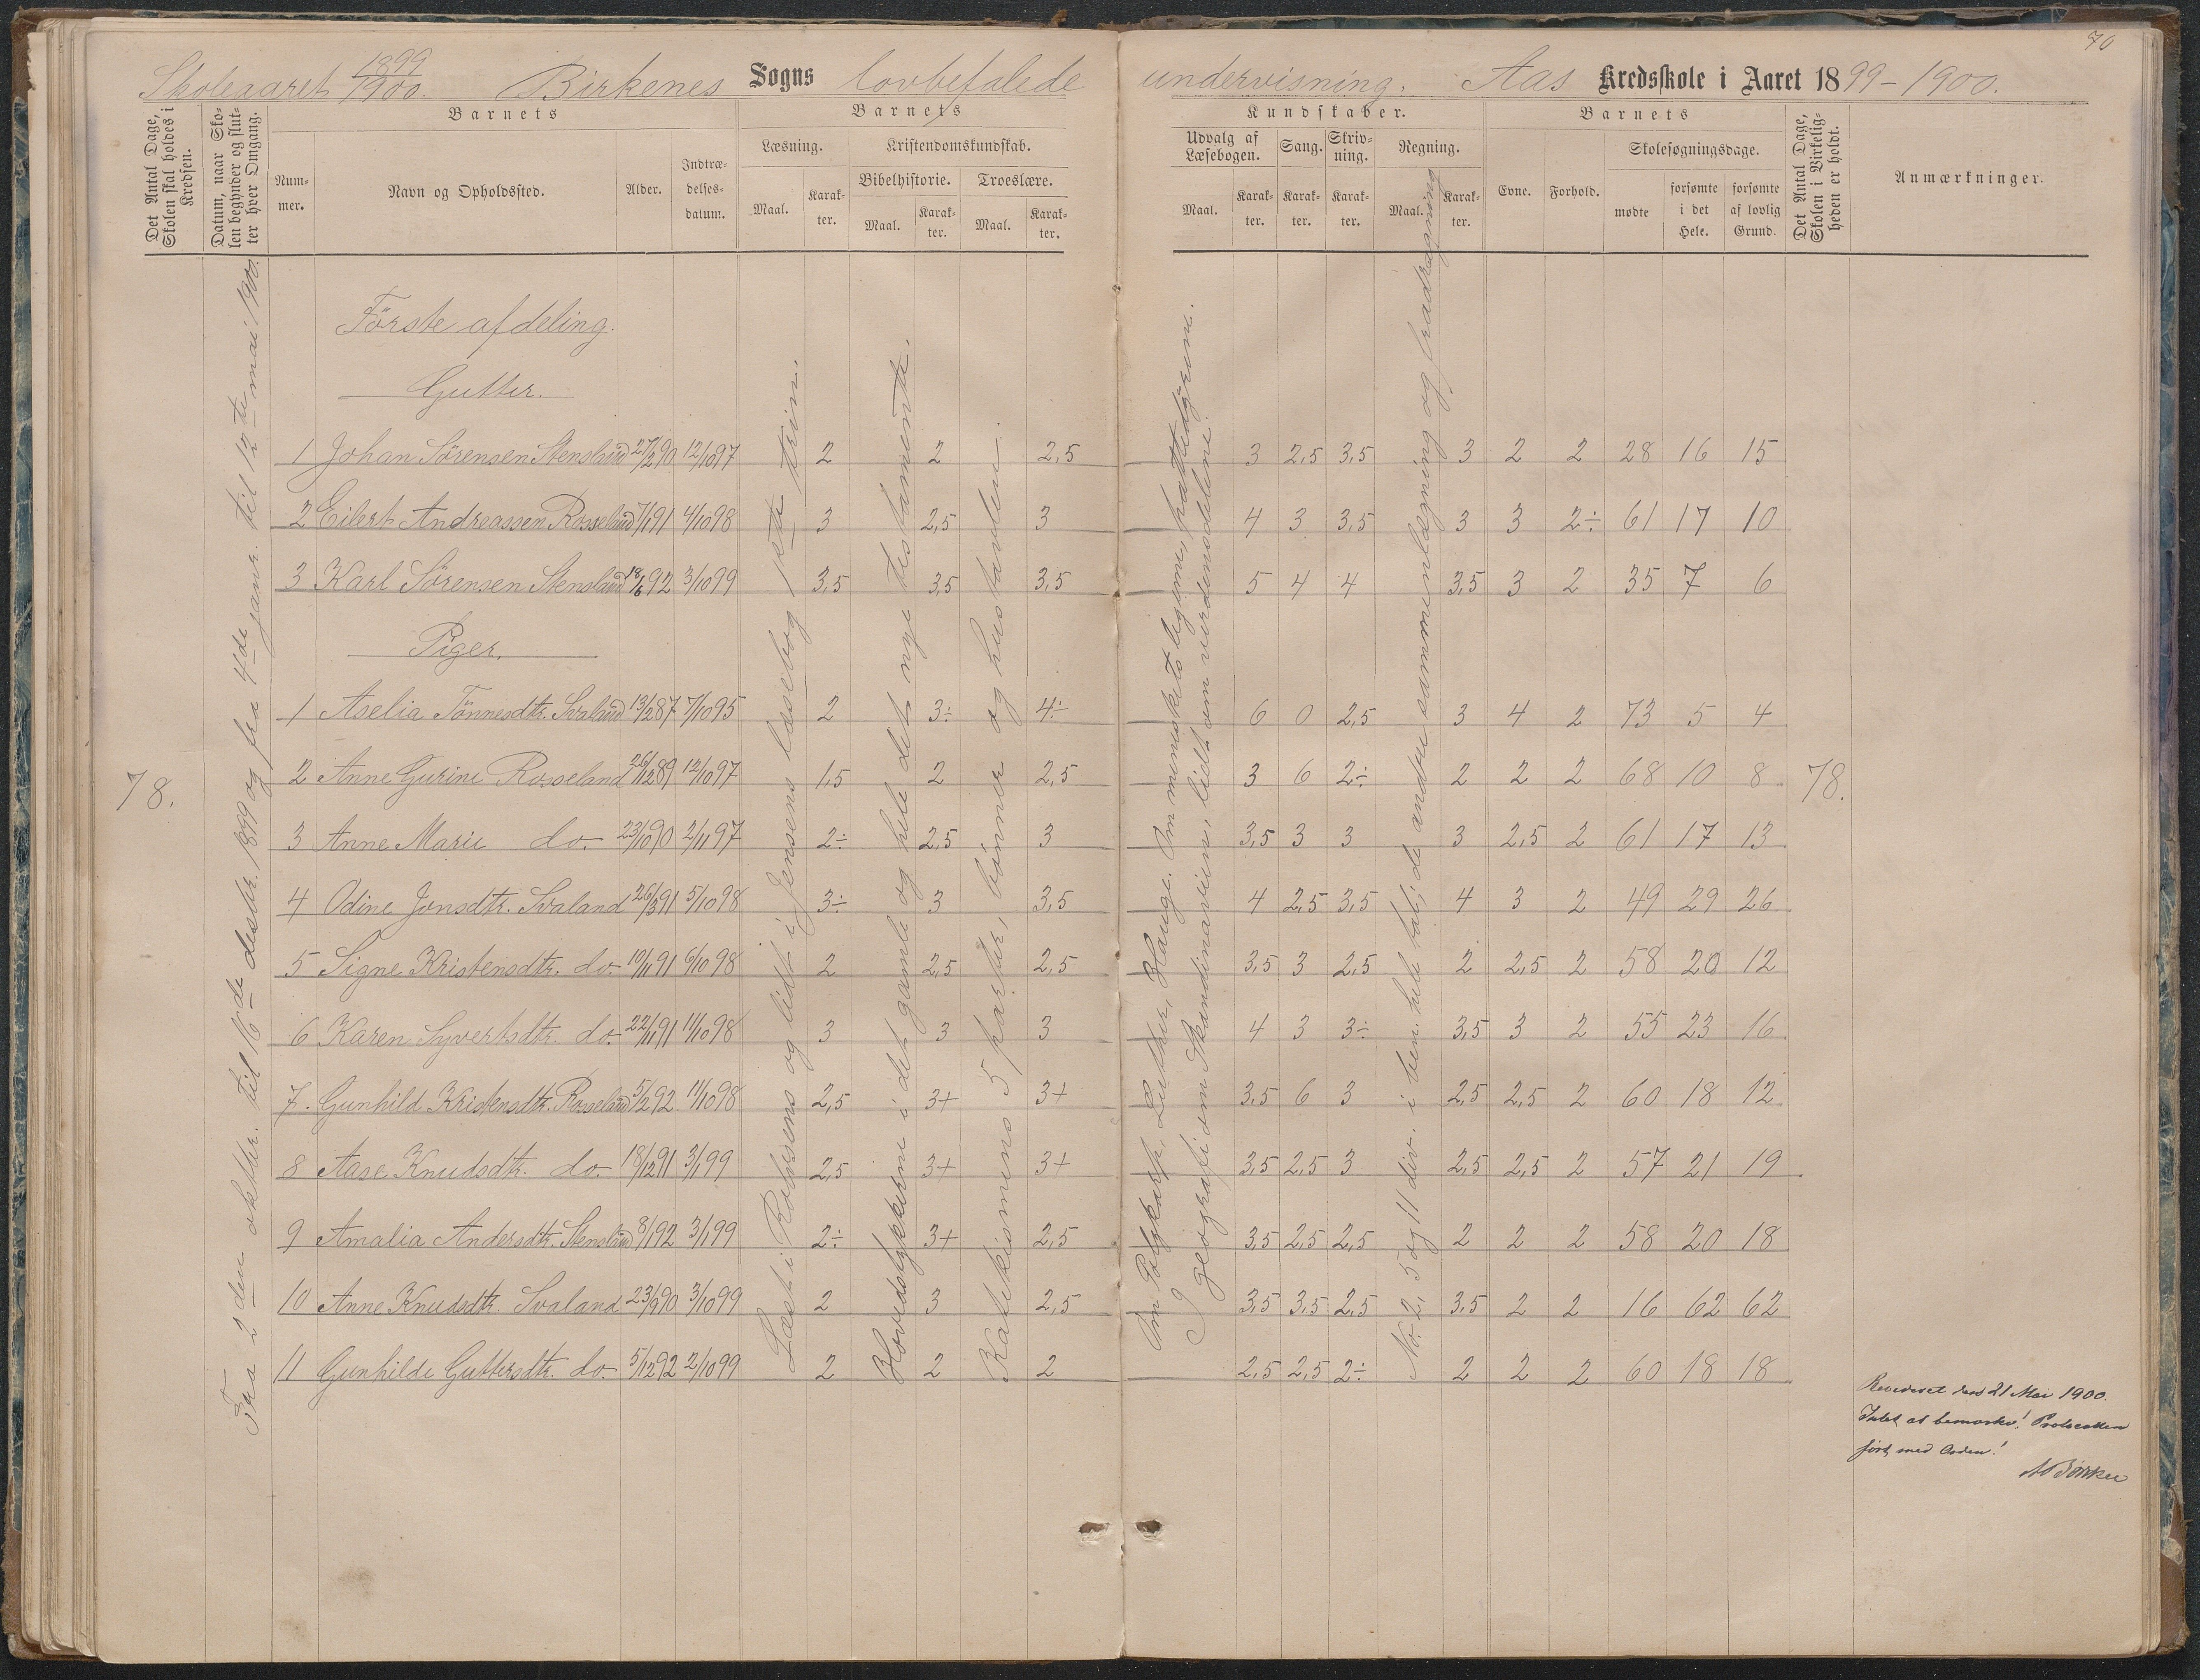 70
Skoleaaret 1899/1900. Birkenes Sogns lovbefalede undervisning. Aas Kredsskole i Aaret 1899-1900.
Det Antal Dage, Skolen skal holdes i Kredsen.
Datum, naar Skolen begynder og slutter hver Omgang.
Barnets
Nummer.
Navn og Opholdssted.
Alder.
Indtrædelsesdatum.
Barnets
Læsning.
Maal.
Karakter.
Kristendomskundskab.
Bibelhistorie.
Maal.
Karakter.
Troeslære.
Maal.
Karakter.
Kundskaber.
Udvalg af Læsebogen.
Maal.
Karakter.
Sang.
Karakter.
Skrivning.
Karakter.
Regning.
Maal.
Karakter.
Barnets
Evne.
Forhold.
Skolesøgningsdage.
mødte
forsømte i det Hele.
forsømte af lovlig Grund.
Det Antal Dage, Skolen i Virkeligheden er holdt.
Anmærkninger.
78.
Fra 2den oktbr. til 16de desbr. 1899 og fra 4de januar. til 12te mai 1900.
Læst i Rolfsens og lidt i Jensens læsebog 1ste trin.
Hovedstykkerne i det gamle og hele det nye testamente.
Katekismens 5 parter, bønner og hustavlen.
Om Polykarp, Luther, Hauge. Om menneskets legeme, pattedyrene.
I geografi om Skandinavien, lidt om verdensdelene.
No. 2, 5 og 11 div. i ben. hele tal; de andre sammenlægning og fradragning
Förste afdeling.
Gutter.
1 Johan Sörensen Stensland 27/2 90 12/10 97 2 2 2,5 3 2,5 3,5 3 2 2 28 16 15
2 Eilert Andreassen Rosseland 7/1 91 4/10 98 3 2,5 3 4 3 3,5 3 3 2÷ 61 17 10
3 Karl Sörensen Stensland 18/6 92 3/10 99 3,5 3,5 3,5 5 4 4 3,5 3 2 35 7 6
Piger.
1 Aselia Tönnesdtr. Svaland 13/2 87 7/10 95 2 3÷ 4÷ 6 0 2,5 3 4 2 73 5 4
2 Anne Gurine Rosseland 26/12 89 12/10 97 1,5 2 2,5 3 6 2÷ 2 2 2 68 10 8 78.
3 Anne Marie do. 23/10 90 2/11 97 2÷ 2,5 3 3,5 3 3 3 2,5 2 61 17 13
4 Odine Jonsdtr. Svaland 26/3 91 5/10 98 3÷ 3 3,5 4 2,5 3,5 4 3 2 49 29 26
5 Signe Kristensdtr. do. 10/11 91 6/10 98 2 2,5 2,5 3,5 3 2,5 2 2,5 2 58 20 12
6 Karen Syvertsdtr. do. 22/11 91 11/10 98 3 3 3 4 3 3÷ 3,5 3 2 55 23 16
7. Gunhild Kristensdtr. Rosseland 5/2 92 11/10 98 2,5 3+ 3+ 3,5 6 3 2,5 2,5 2 60 18 12
8 Aase Knudsdtr. do. 18/12 91 3/1 99 2,5 3+ 3+ 3,5 2,5 3 2,5 2,5 2 57 21 19
9 Amalia Andersdtr. Stensland 8/1 92 3/1 99 2÷ 3+ 2,5 3,5 2,5 2,5 2 2 2 58 20 18
10 Anne Knudsdtr. Svaland 23/9 90 3/10 99 2 3 2,5 3,5 3,5 2,5 3,5 2 2 16 62 62
11 Gunhilde Guttorsdtr. do. 5/12 92 2/10 99 2 2 2 2,5 2,5 2÷ 2 2 2 60 18 18
Revideret den 21 Mai 1900.
Intet at bemærke! Protocollen
ført med Orden!